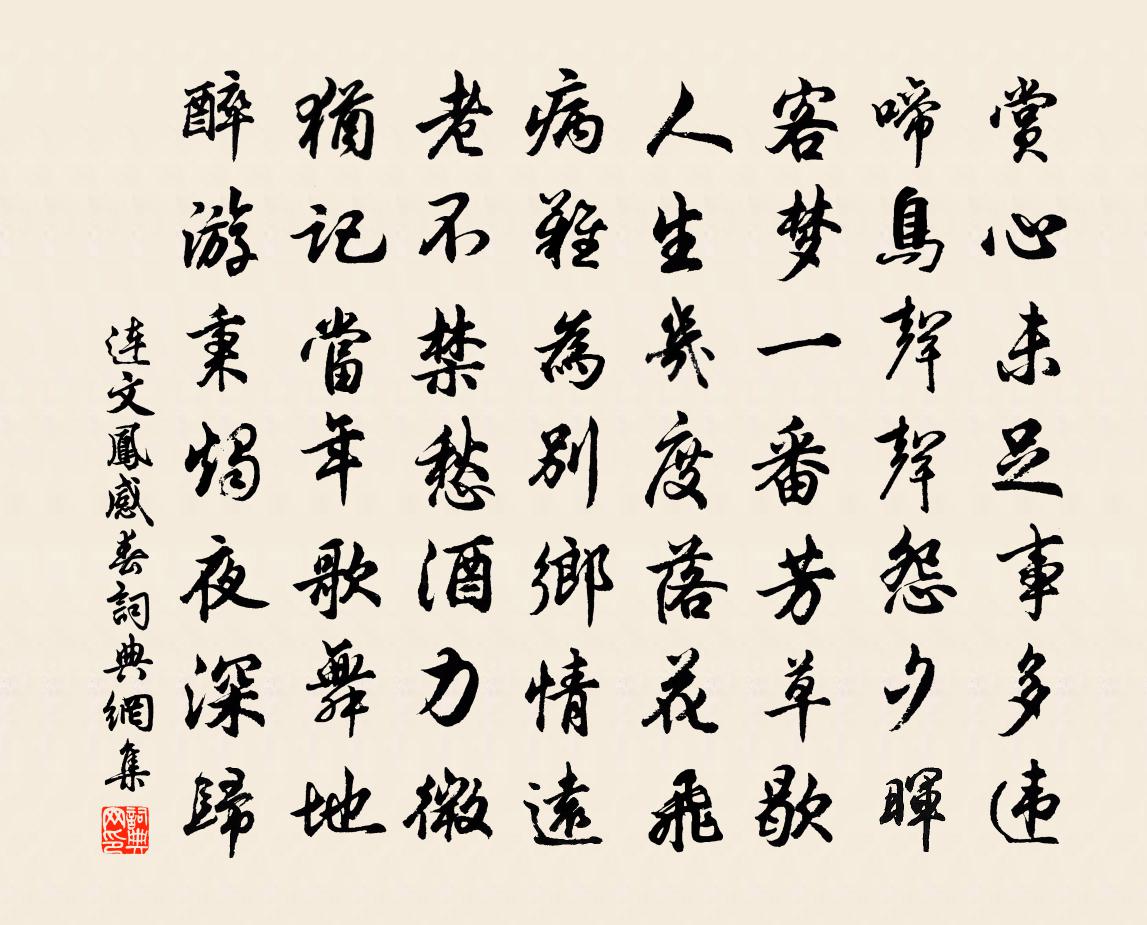 賞心未足事多违
啼鳥聲聲怨夕暉
客梦一番芳草歇
人生幾度落花飛
病難為别鄉情遠
老不禁愁酒力微
猶記當年歌舞地
醉游秉燭夜深歸
连文鳳感春詞典網集
詞典网印